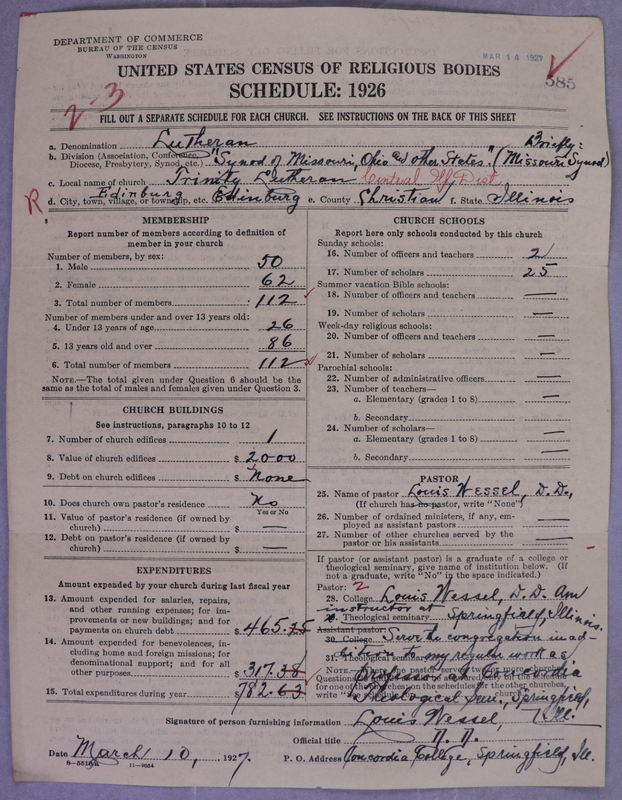 DEPARTMENT OF COMMERCE
BUREAU OF THE CENSUS
WASHINGTON
MAR 14 1927
585
UNITED STATES CENSUS OF RELIGIOUS BODIES
SCHEDULE: 1926
2-3
FILL OUT A SEPARATE SCHEDULE FOR EACH CHURCH. SEE INSTRUCTIONS ON THE BACK OF THIS SHEET
a. Denomination Lutheran Briefly:
b. Division (Association, Conference, Diocese, Presbytery, Synod, etc.) "Synod of Missouri, Ohio and other States." (Missouri Synod)
c. Local name of church Trinity Lutheran Central Ill Dist.
R
Edinburg
d. City, town, village, or township, etc. Edinburg e. County Christian f. State Illinois
MEMBERSHIP
Report number of members according to definition of
member in your church
Number of members, by sex:
1. Male 50
2. Female 62
3. Total number of members 112
Number of members under and over 13 years old:
4. Under 13 years of age 26
5. 13 years old and over 86
6. Total number of members 112
NOTE.—The total given under Question 6 should be the
same as the total of males and females given under Question 3.
CHURCH BUILDINGS
See instructions, paragraphs 10 to 12
7. Number of church edifices 1
8. Value of church edifices $ 2000
9. Debt on church edifices $ None
10. Does church own pastor's residence? No
Yes or No
11. Value of pastor's residence (if owned by
church) $ —
12. Debt on pastor's residence (if owned by
church) $ —
EXPENDITURES
Amount expended by your church during last fiscal year
13. Amount expended for salaries, repairs,
and other running expenses; for im-
provements or new buildings; and for
payments on church debt $ 465.25
14. Amount expended for benevolences, in-
cluding home and foreign missions; for
denominational support; and for all
other purposes $ 317.38
15. Total expenditures during year $ 782.63
CHURCH SCHOOLS
Report here only schools conducted by this church
Sunday schools:
16. Number of officers and teachers 2
17. Number of scholars 25
Summer vacation Bible schools:
18. Number of officers and teachers —
19. Number of scholars —
Week-day religious schools:
20. Number of officers and teachers —
21. Number of scholars —
Parochial schools:
22. Number of administrative officers —
23. Number of teachers—
a. Elementary (grades 1 to 8) —
b. Secondary —
24. Number of scholars—
a. Elementary (grades 1 to 8) —
b. Secondary —
PASTOR
25. Name of pastor Louis Wessel, D. D.,
(If church has no pastor, write "None")
26. Number of ordained ministers, if any, em-
ployed as assistant pastors —
27. Number of other churches served by the
pastor or his assistants —
If pastor (or assistant pastor) is a graduate of a college or
theological seminary, give name of institution below. (If
not a graduate, write "No" in the space indicated.)
Pastor: 2
28. College Louis Wessel, D. D. Am
instructor at
29. Theological seminary Springfield, Illinois.
Assistant pastor:
30. College Serve the congregation in ad-
dition to my regular work as
31. Theological seminary
professor at Concordia
Theological Sem., Springfield,
Ill.
Signature of person furnishing information Louis Wessel,
Official title
Date March 10, 1927. P. O. Address Concordia College, Springfield, Ill.